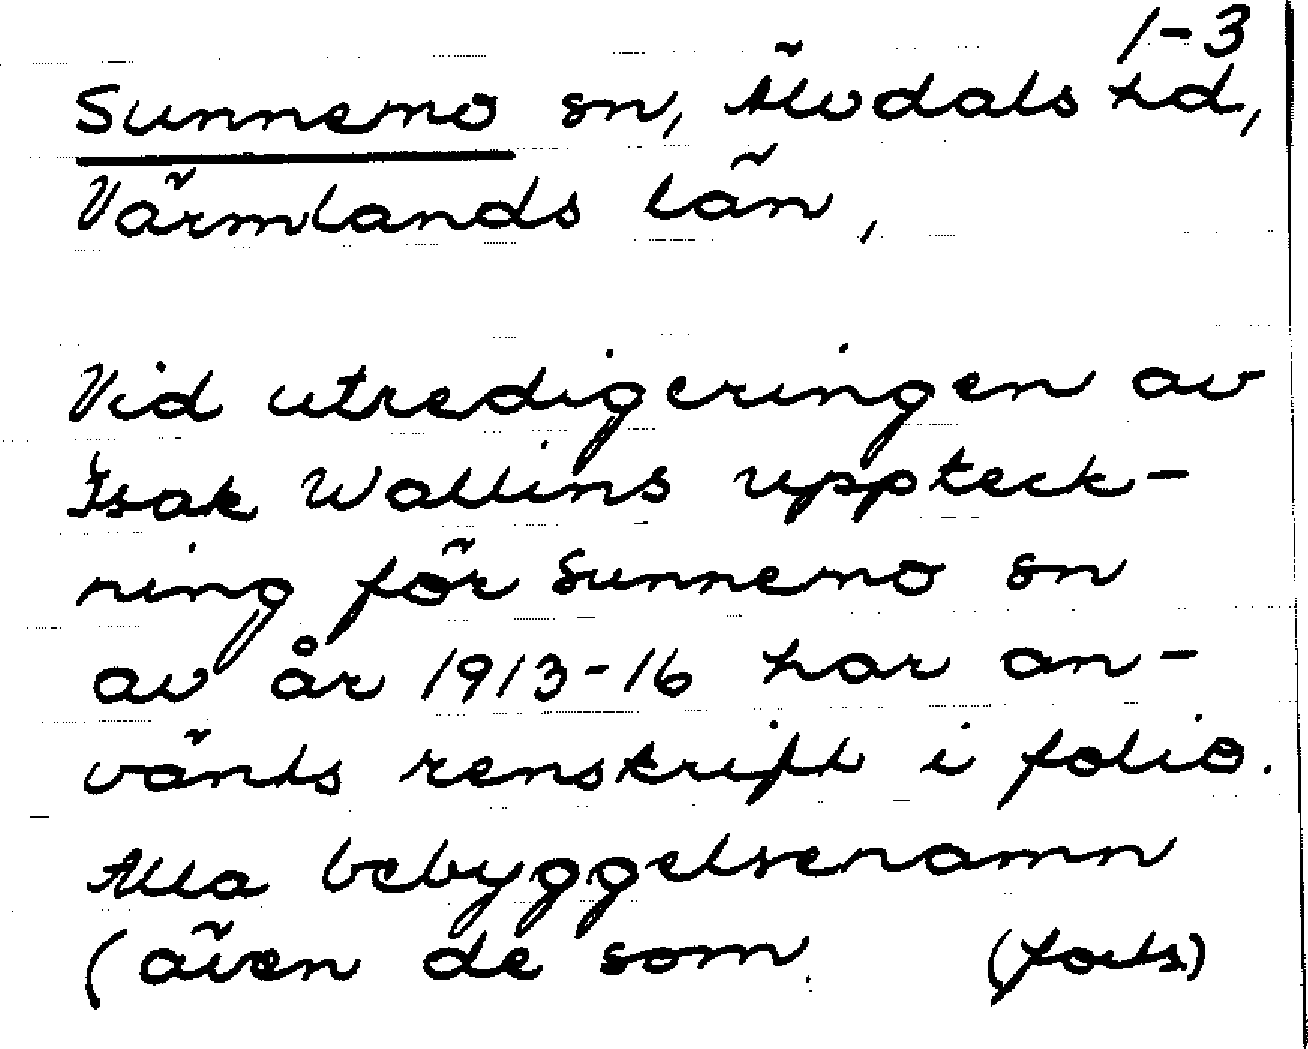 1-3
Sunnemo sn, Älvdals hd,
Värmlands län,
Vid utredigeringen av
Isak Wallins uppteck-
ning för Sunnemo sn
av år 1913-16 har an-
vänts renskrift i folio.
Alla bebyggelsenamn
(även de som (forts)